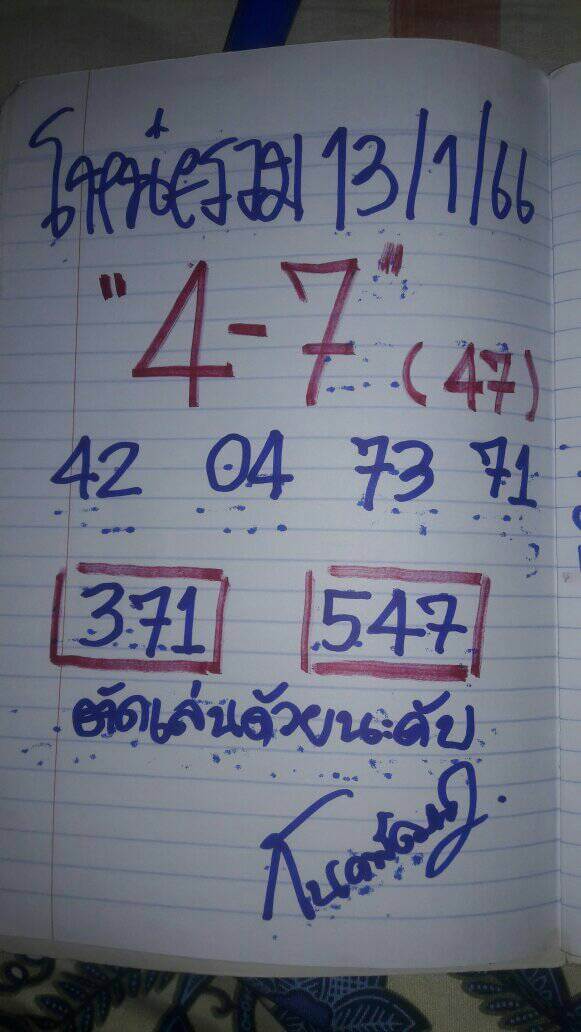 13/1/66
"4-7"
(47)
42 04 73 71
371 547
ตัดเล่นด้วยนะคับ